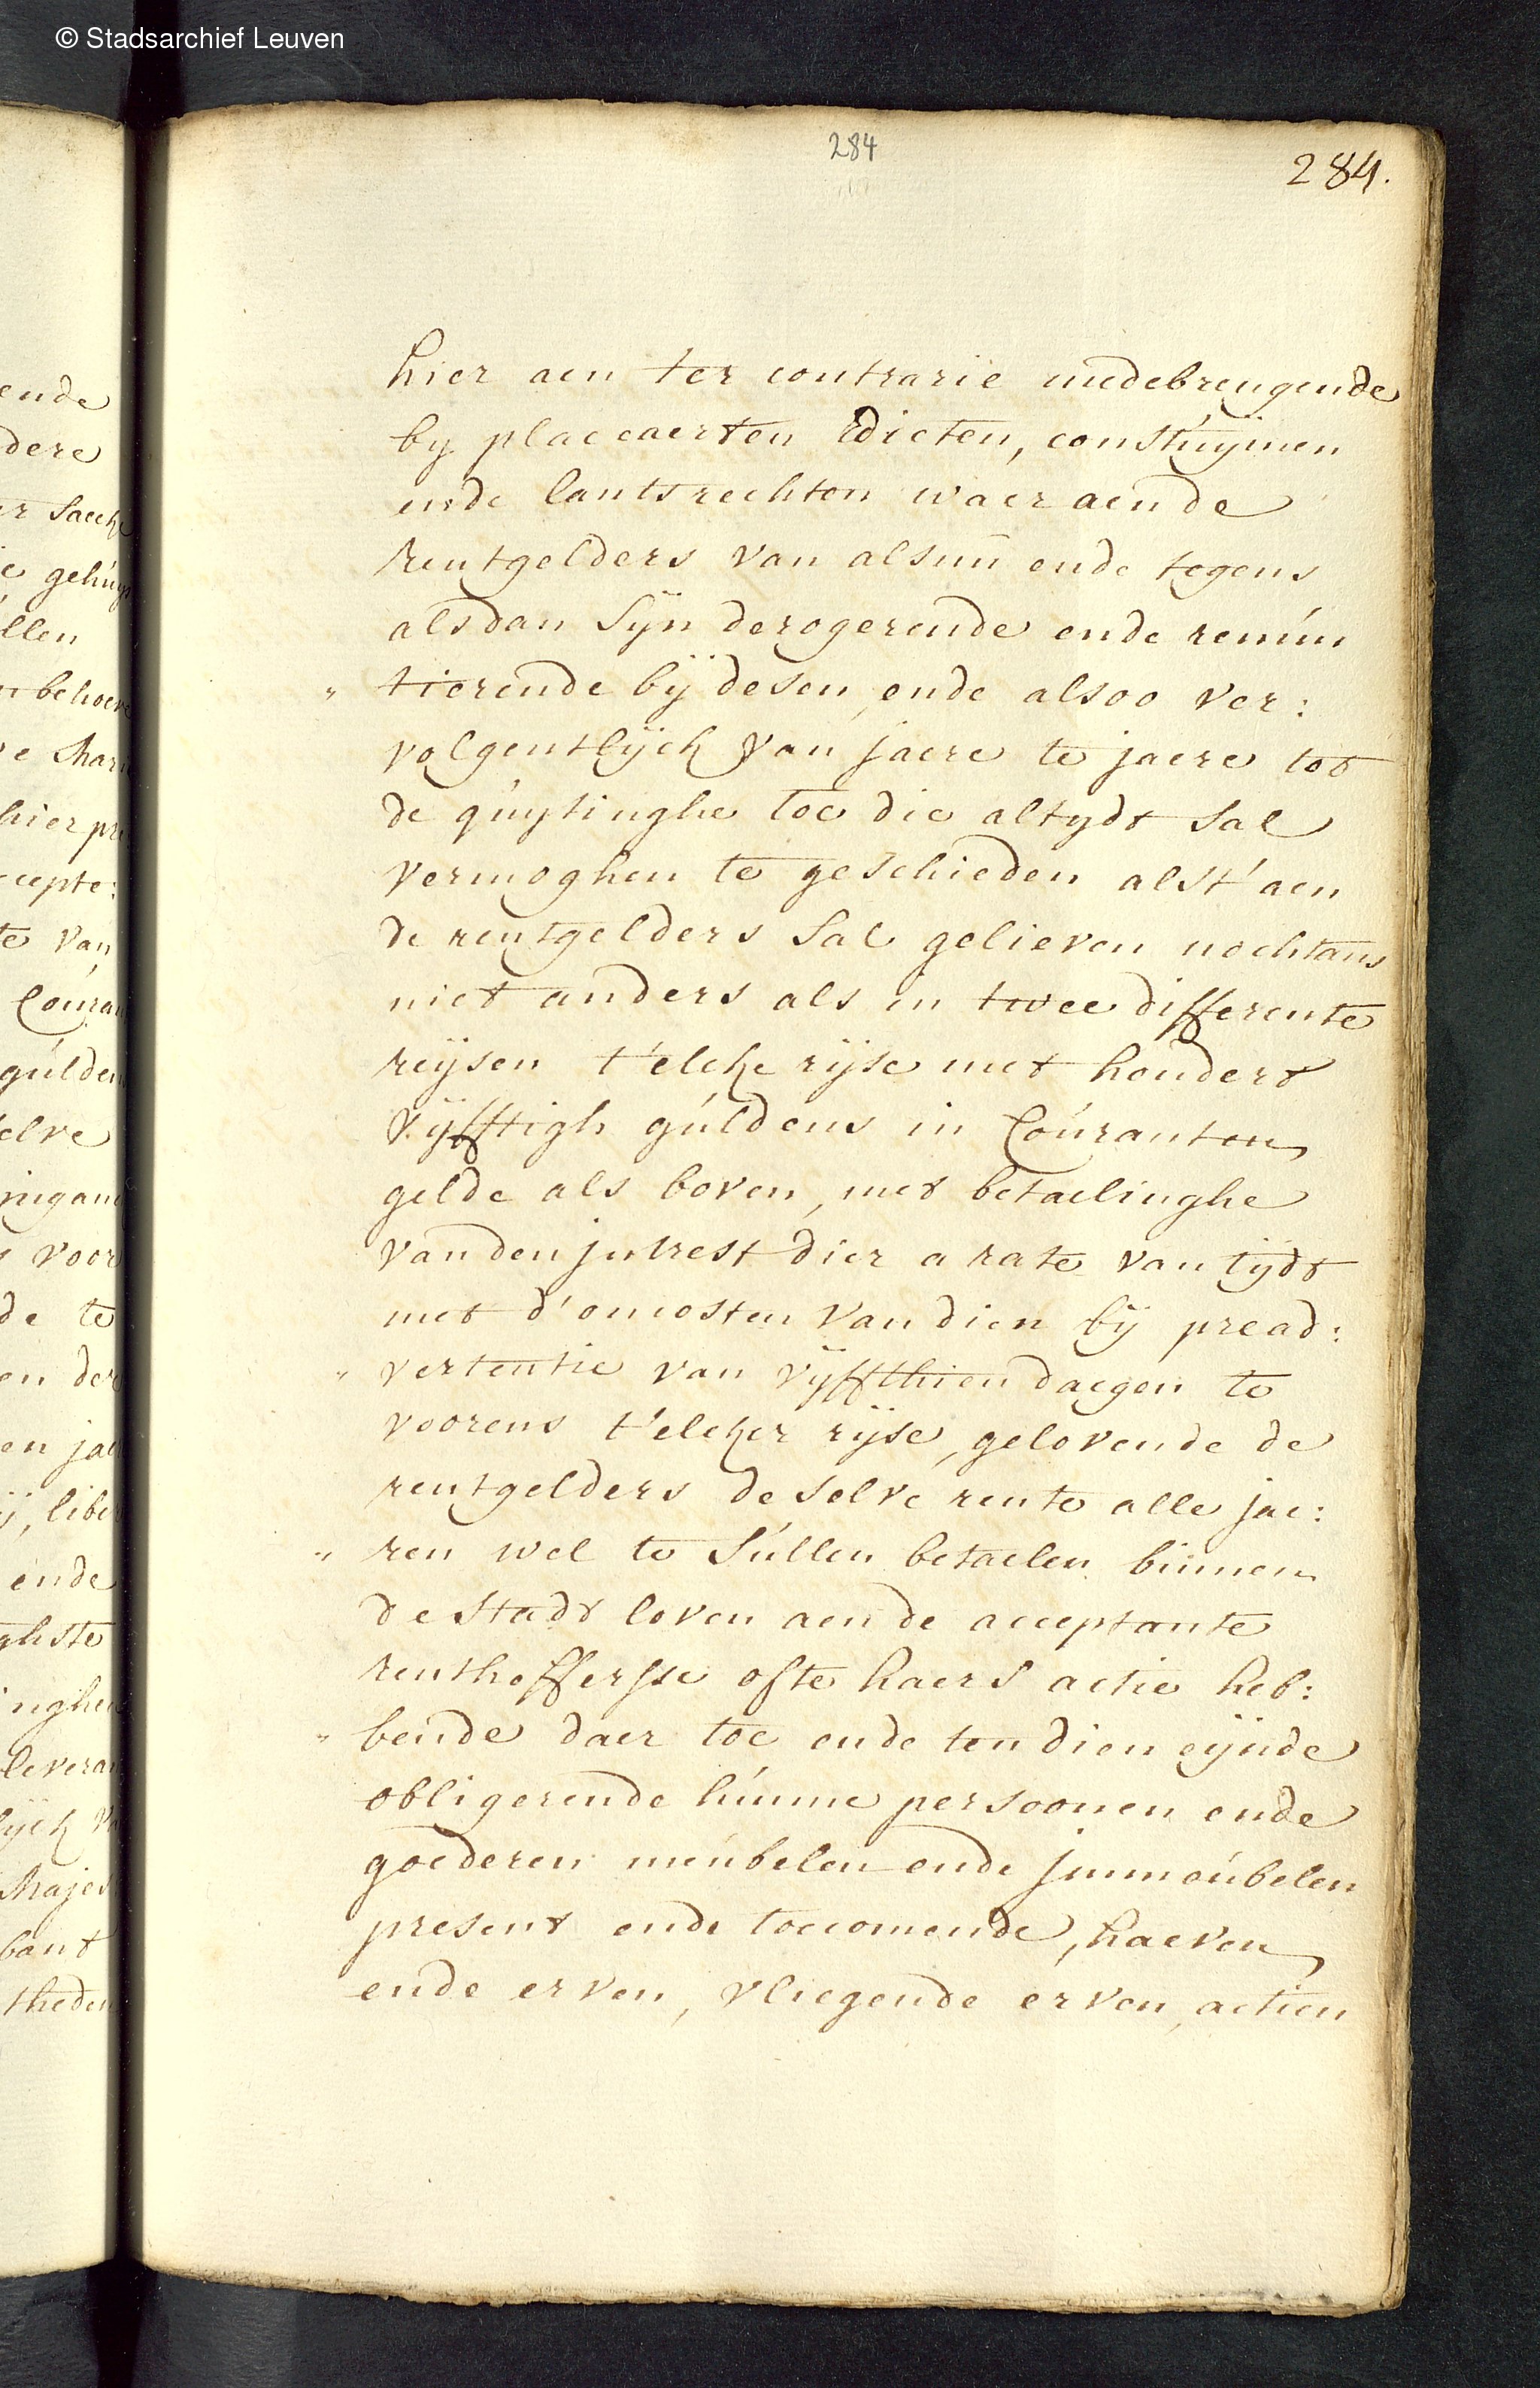 © Stadsarchief Leuven
284
284.
hier aen ter contrarie medebrengende
by placcaerten Edicten, constúÿmen
ende lantsrechten waer aen de
rentgelders van alsnú ende tegens
alsdan Sÿn derogerende ende renún
" tierende bÿ desen, ende alsoo ver:
volgentlÿck van jaere te jaere tot
de qúytinghe toe die altydt Sal
vermoghen te geschieden alst' aen
de rentgelders Sal gelieven nochtans
niet anders als in twee differente
reÿsen t'elcke rÿse met hondert
vÿfftigh gúldens in Coúranten
gelde als boven, met betaelinghe
van den jntrest dier a rate van tÿdt
met d'oncosten van dien bÿ pread:
" vertentie van vÿffthien daegen te
voorens t'elcker rÿse, gelovende de
rentgelders de selve rente alle jae:
" ren wel te Súllen betaelen binnen
de Stadt loven aen de acceptante
rentheffersse ofte haers actie heb:
" bende daer toe ende ten dien eÿnde
obligerende húnne persoonen ende
goederen meúbelen ende jmmeúbelen
present ende toecomende, haeven
ende erven, vliegende erven, actien
ende
dere
Saecke
gehúys
llen
behoeve
hier pre
cepte:
te van
Coúran
gúlden
elve
voor
de te
en der
en jae
ende
ghste
nghen
leveran
lÿck
Majes
bant
theden